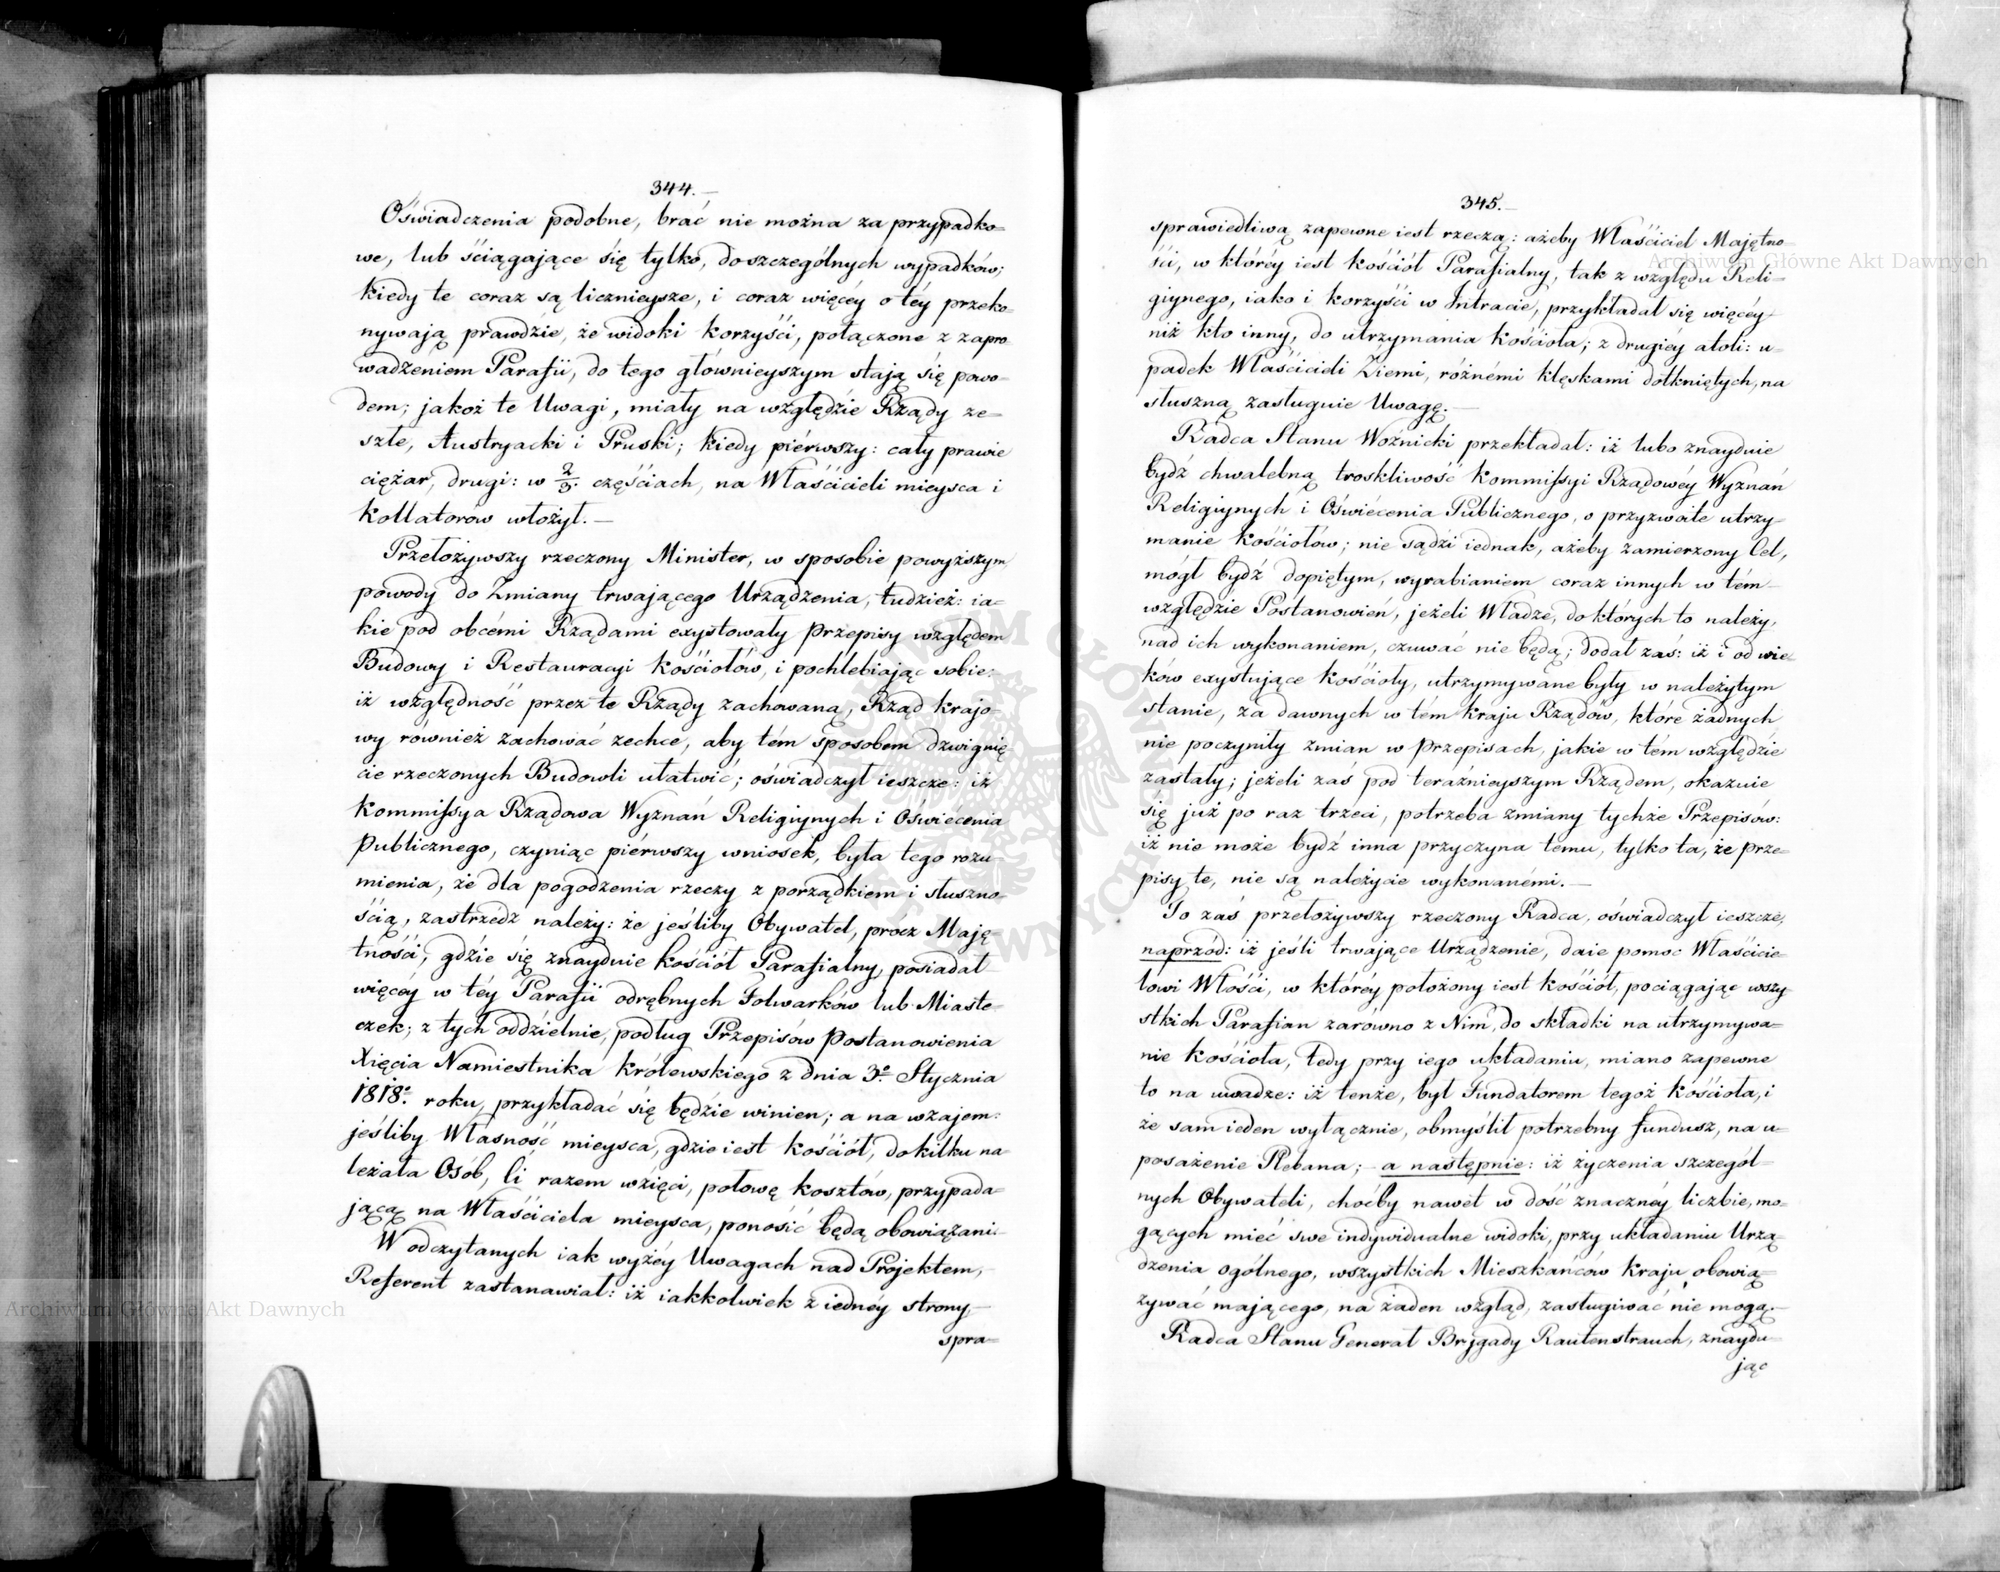 344.
Oświadczenia podobne, brać nie można za przypadko=
we, lub ściągające się tylko, do szczególnych wypadków;
kiedy te coraz są licznieysze, i coraz więcéy o téy przeko=
nywają prawdzie, że widoki korzyści, połączone z zapro=
wadzeniem Parafii, do tego głównieyszym stają się powo=
dem; jakoż te Uwagi, miały na względzie Rządy ze=
szłe, Austryacki i Pruski; kiedy piérwszy: cały prawie
ciężar, drugi: w 2/3. częściach, na Właścicieli mieysca i
Kollatorów włożył. —
Przełożywszy rzeczony Minister, w sposobie powyższym
powody do Zmiany trwającego Urządzenia, tudzież: ia=
kie pod obcémi Rządami exystowały Przepisy względem
Budowy i Restauracyi Kościołów, i pochlebiając sobie:
iż względność przez te Rządy zachowaną, Rząd krajo=
wy rownież zachować zechce, aby tém sposobem dzwignię=
cie rzeczonych Budowli ułatwić; oświadczył ieszcze: iż
Kommissya Rządowa Wyznań Religiynych i Oświécenia
Publicznego, czyniąc piérwszy wniosek, była tego rozu=
mienia, że dla pogodzenia rzeczy z porządkiem i słuszno=
ścią, zastrzédz należy: że jeśliby Obywatel, prócz Maję=
tności, gdzie się znayduie Kościół Parafialny, posiadał
więcéy w téy Parafii odrębnych Folwarków lub Miaste=
czek; z tych oddzielnie, podług Przepisów Postanowienia
Xięcia Namiestnika Królewskiego z dnia 3º. Stycznia
1818º. roku, przykładać się będzie winien; a na wzajem:
jeśliby Własność mieysca, gdzie iest Kościół, do kilku na=
leżała Osób, li razem wzięci, połowę kosztów, przypada=
jącą na Właściciela mieysca, ponosić będą obowiązani.
W odczytanych iak wyżéy Uwagach nad Projektem,
Referent zastanawiał: iż iakkolwiek z iednéy strony
spra=
345.
sprawiedliwą zapewne iest rzeczą: ażeby Właściciel Majętno=
ści, w któréy iest Kościół Parafialny, tak z względu Reli=
giynego, iako i korzyści w Intracie, przykładał się więcéy
niż kto inny, do utrzymania Kościoła; z drugiey atoli: u=
padek Właścicieli Ziemi, różnémi klęskami dotkniętych, na
słuszną zasługuie Uwagę. —
Radca Stanu Woźnicki przekładał: iż lubo znayduie
bydź chwalebną troskliwość Kommissyi Rządowéy Wyznań
Religiynych i Oświécenia Publicznego, o przyzwoite utrzy=
manie Kościołów; nie sądzi iednak, ażeby zamierzony Cel,
mógł bydź dopiętym, wyrabianiem coraz innych w tém
względzie Postanowień, jeżeli Władze, do których to należy,
nad ich wykonaniem, czuwać nie będą; dodał zaś: iż i od wie=
ków exystujące Kościoły, utrzymywane były w należytym
stanie, za dawnych w tém kraju Rządów, które żadnych
nie poczyniły zmian w Przepisach, jakie w tém względzie
zastały; jeżeli zaś pod teraźnieyszym Rządem, okazuie
się już po raz trzeci, potrzeba zmiany tychże Przepisów:
iż nie może bydź inna przyczyna temu, tylko ta, że prze=
pisy te, nie są należycie wykonanémi. —
To zaś przełożywszy rzeczony Radca, oświadczył ieszcze,
naprzód: iż jeśli trwające Urządzenie, daie pomoc Właścicie=
lowi Włości, w któréy położony iest Kościół, pociągając wszy=
stkich Parafian zarówno z Nim, do składki na utrzymywa=
nie Kościoła, tedy przy iego układaniu, miano zapewne
to na uwadze: iż tenże, był Fundatorem tegoż Kościoła, i
że sam ieden wyłącznie, obmyślił potrzebny fundusz, na u=
posażenie Plebana; — a następnie: iż życzenia szczegól=
nych Obywateli, choćby nawet w dość znacznéy liczbie, mo=
gących mieć swe indywidualne widoki, przy układaniu Urzą=
dzenia ogólnego, wszystkich Mieszkańców Kraju obowią=
zywać mającego, na żaden wzgląd, zasługiwać nie mogą. —
Radca Stanu Generał Brygady Rautenstrauch, znaydu=
jąc
Archiwum Główne Akt Dawnych
Archiwum Główne Akt Dawnych
ARCHIWUM GŁÓWNE AKT DAWNYCH